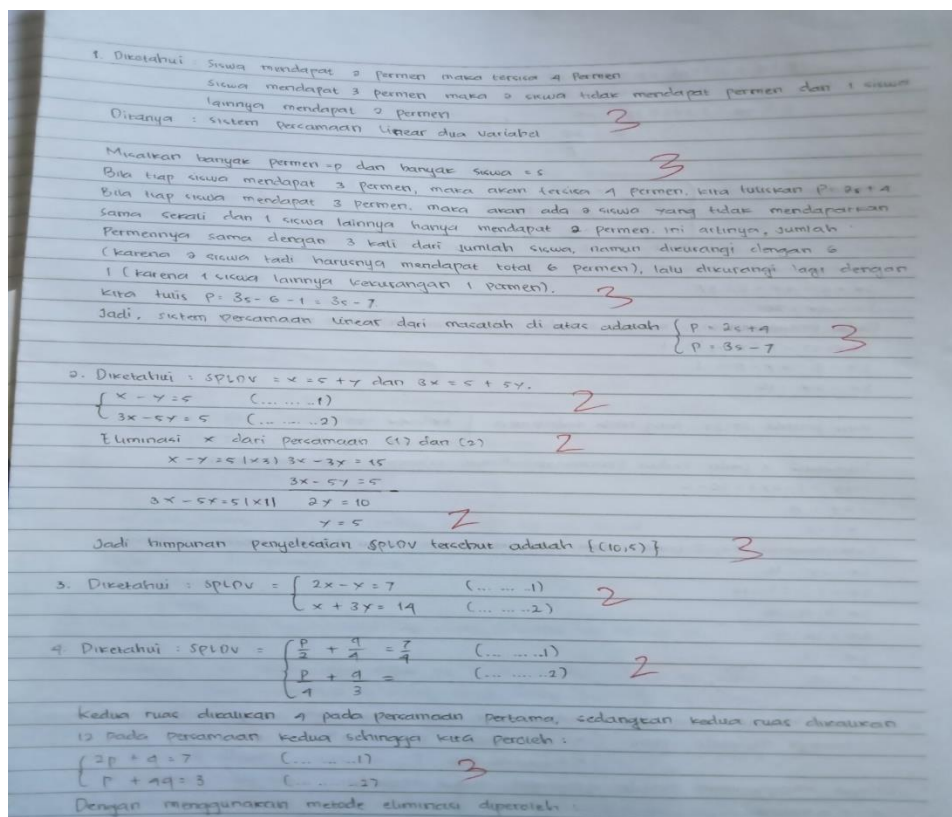 1. Diketahui : Siswa mendapat 2 permen maka tersisa 4 Permen
Siswa mendapat 3 permen maka 2 siswa tidak mendapat permen dan 1 siswa
lainnya mendapat 2 permen
Ditanya : sistem persamaan linear dua variabel 3
Misalkan banyak permen = p dan banyak siswa = s 3
Bila tiap siswa mendapat 3 permen, maka akan tersisa 4 permen, kita tuliskan P = 2s + 4
Bila tiap siswa mendapat 3 permen, maka akan ada 2 siswa yang tidak mendapatkan
sama sekali dan 1 siswa lainnya hanya mendapat 2 permen. ini artinya, jumlah
Permennya sama dengan 3 kali dari jumlah siswa, namun dikurangi dengan 6
(karena 2 siswa tadi harusnya mendapat total 6 permen), lalu dikurangi lagi dengan
1 (karena 1 siswa lainnya kekurangan 1 permen). 3
kita tulis P = 3s - 6 - 1 = 3s - 7
Jadi, sistem persamaan linear dari masalah di atas adalah { P = 2s + 4 3
P = 3s - 7
2. Diketahui : SPLDV = x = 5 + y dan 3x = 5 + 5y.
{ x - y = 5 (... ... ..1) 2
3x - 5y = 5 (... ... ..2)
Eliminasi x dari persamaan (1) dan (2) 2
x - y = 5 |x3| 3x - 3y = 15
3x - 5y = 5
3x - 5y = 5 |x1| 2y = 10
y = 5 2
Jadi himpunan penyelesaian SPLDV tersebut adalah {(10,5)} 3
3. Diketahui : SPLDV = { 2x - y = 7 (... ... ..1) 2
x + 3y = 14 (... ... ..2)
4. Diketahui : SPLDV = { p/2 + q/4 = 7/4 (... ... ..1)
p/4 + q/3 = (... ... ..2) 2
Kedua ruas dikalikan 4 pada persamaan pertama, sedangkan kedua ruas dikalikan
12 pada persamaan kedua sehingga kita peroleh :
{ 2p + q = 7 (... ... ..1) 3
p + 4q = 3 (... ... ..2)
Dengan menggunakan metode eliminasi diperoleh :